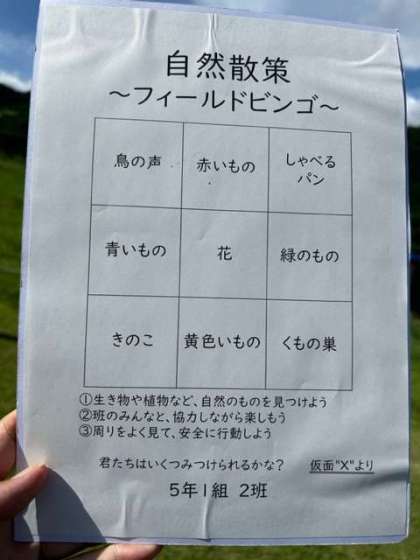 自然散策
～フィールドビンゴ～
鳥の声 赤いもの しゃべる
パン
青いもの 花 緑のもの
きのこ 黄色いもの くもの巣
①生き物や植物など、自然のものを見つけよう
②班のみんなと、協力しながら楽しもう
③周りをよく見て、安全に行動しよう
君たちはいくつみつけられるかな？ 仮面"X"より
5年1組 2班